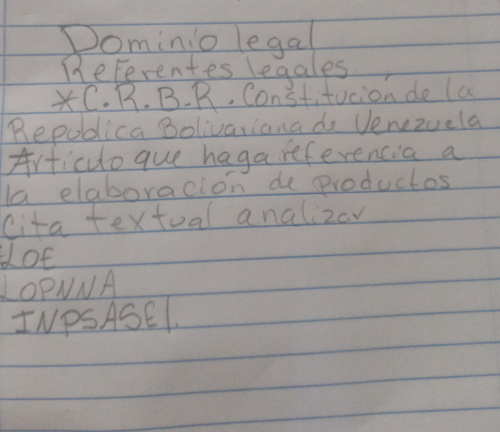 Dominio legal
Referentes legales
*C.R.B.R. Constitución de la
Republica Bolivariana de Venezuela
Articulo que haga referencia a
la elaboración de productos
Cita textual analizar
LOE
LOPNNA
INPSASEL.